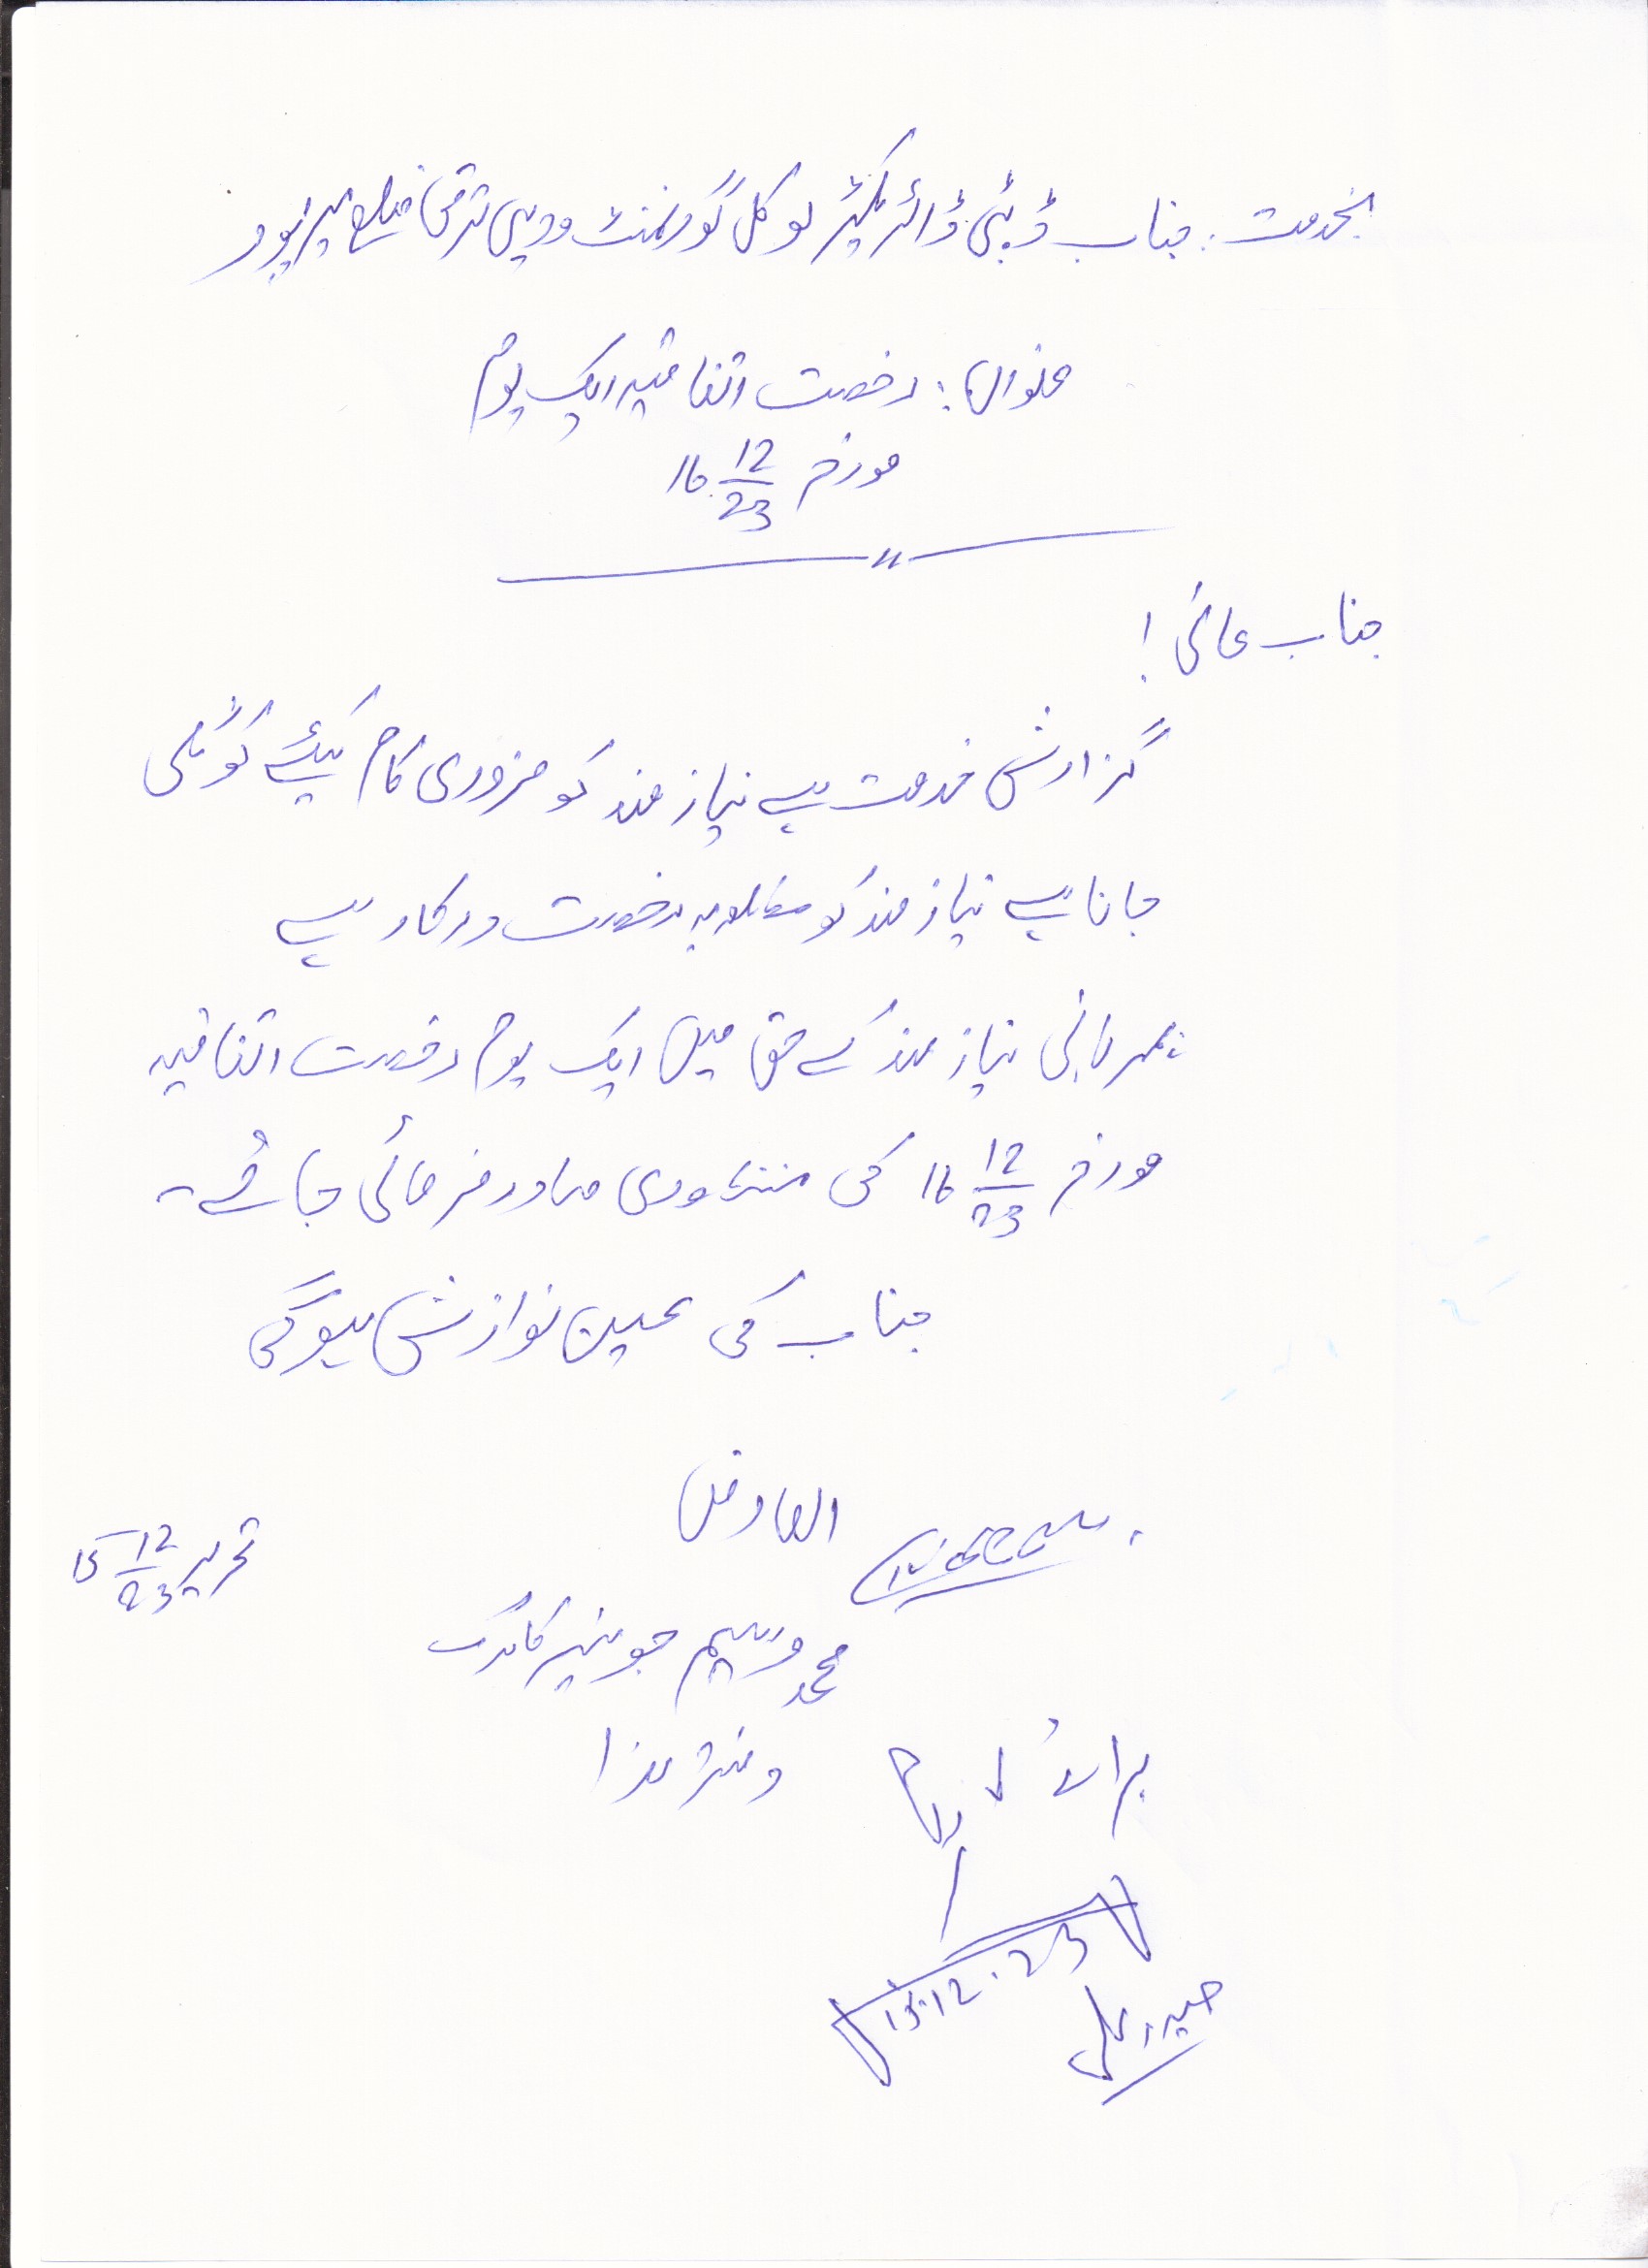 بخدمت: جناب ڈپٹی ڈائریکٹر لوکل گورنمنٹ ودیہی ترقی ضلع میرپور
عنوان: رخصت اتفاقیہ ایک یوم
مورخہ 16 12/23
جناب عالی!
گزارش خدمت ہے نیاز مند کو ضروری کام کیلئے کوٹلی
جانا ہے نیاز مند کو مطلوبہ رخصت درکار ہے
بمہربانی نیاز مند کے حق میں ایک یوم رخصت اتفاقیہ
مورخہ 16 12/23 کی منظوری صادر فرمائی جائے۔
جناب کی عین نوازش ہوگی
العارض
تحریر 15 12/23
محمد وسیم جونیئر کلرک
دفتر ہذا
15.12.23